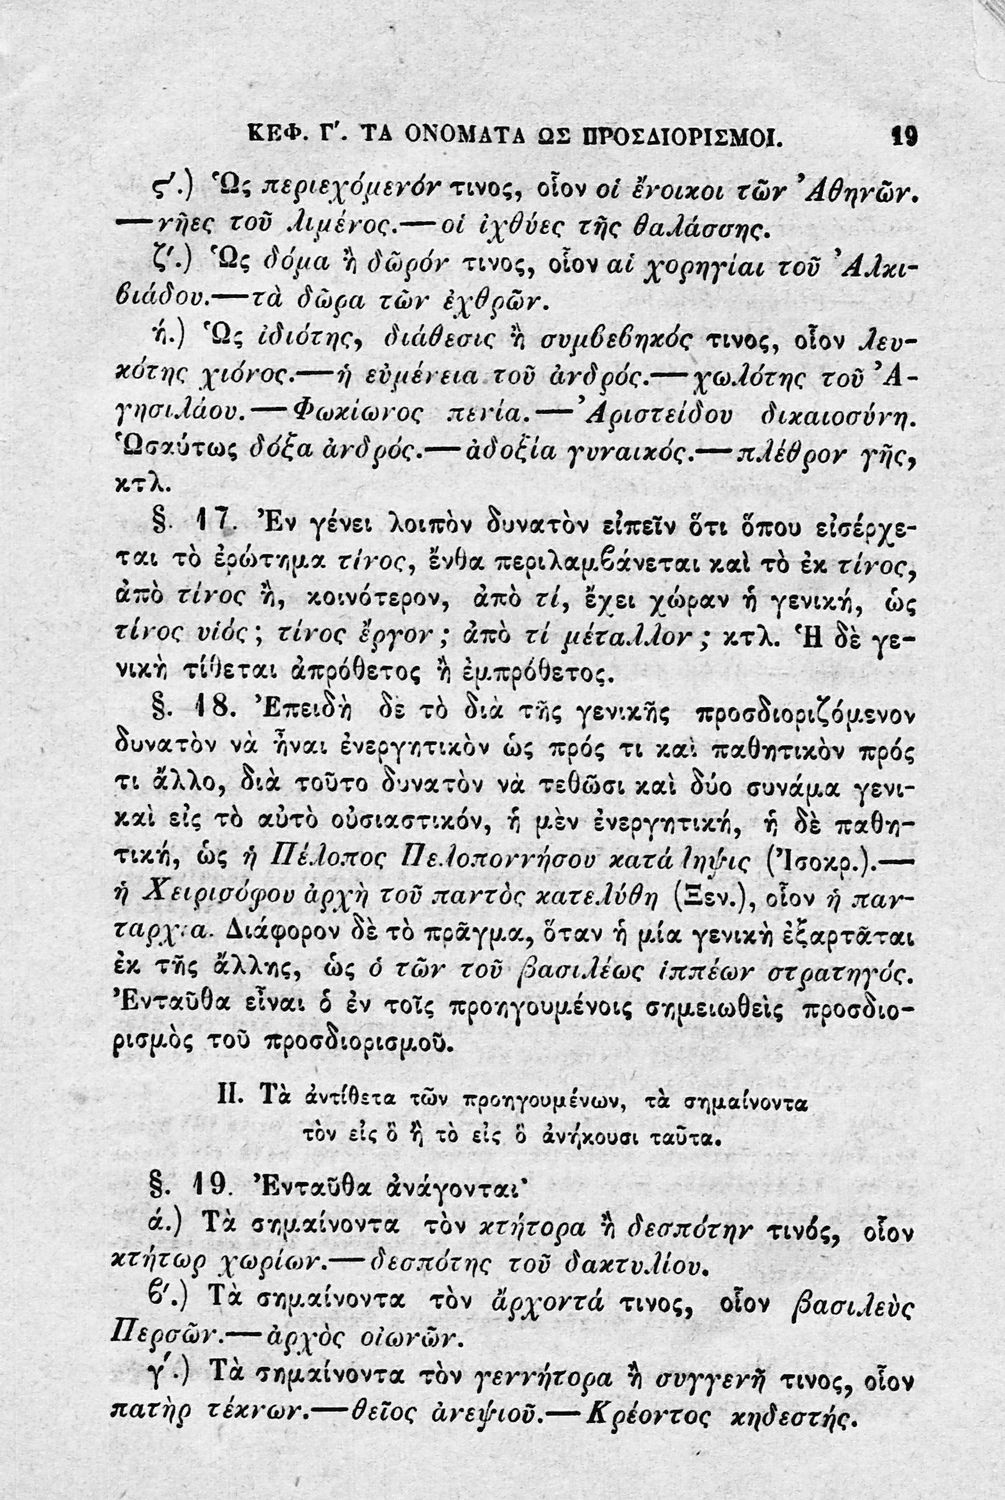 ΚΕΦ. Γ΄. ΤΑ ΟΝΟΜΑΤΑ ΩΣ ΠΡΟΣΔΙΟΡΙΣΜΟΙ. 19
ϛ΄.) Ὡς περιεχόμενόν τινος, οἷον οἱ ἔνοικοι τῶν Ἀθηνῶν.
—νῆες τοῦ λιμένος.—οἱ ἰχθύες τῆς θαλάσσης.
ζ΄.) Ὡς δόμα ἢ δῶρόν τινος, οἷον αἱ χορηγίαι τοῦ Ἀλκι-
βιάδου.—τὰ δῶρα τῶν ἐχθρῶν.
ή.) Ὡς ἰδιότης, διάθεσις ἢ συμβεβηκός τινος, οἷον λευ-
κότης χιόνος.—ἡ εὐμένεια τοῦ ἀνδρός.—χωλότης τοῦ Ἀ-
γησιλάου.—Φωκίωνος πενία.—Ἀριστείδου δικαιοσύνη.
Ὡσαύτως δόξα ἀνδρός.—ἀδοξία γυναικός.—πλέθρον γῆς,
κτλ.
§. 17. Ἐν γένει λοιπὸν δυνατὸν εἰπεῖν ὅτι ὅπου εἰσέρχε-
ται τὸ ἐρώτημα τίνος, ἔνθα περιλαμβάνεται καὶ τὸ ἐκ τίνος,
ἀπὸ τίνος ἢ, κοινότερον, ἀπὸ τί, ἔχει χώραν ἡ γενική, ὡς
τίνος υἱός; τίνος ἔργον; ἀπὸ τί μέταλλον; κτλ. Ἡ δὲ γε-
νικὴ τίθεται ἀπρόθετος ἢ ἐμπρόθετος.
§. 18. Ἐπειδὴ δὲ τὸ διὰ τῆς γενικῆς προσδιοριζόμενον
δυνατὸν νὰ ἦναι ἐνεργητικὸν ὡς πρός τι καὶ παθητικὸν πρός
τι ἄλλο, διὰ τοῦτο δυνατὸν νὰ τεθῶσι καὶ δύο συνάμα γενι-
καὶ εἰς τὸ αὐτὸ οὐσιαστικόν, ἡ μὲν ἐνεργητική, ἡ δὲ παθη-
τική, ὡς ἡ Πέλοπος Πελοποννήσου κατάληψις (Ἰσοκρ.).—
ἡ Χειρισόφου ἀρχὴ τοῦ παντὸς κατελύθη (Ξεν.), οἷον ἡ παν-
ταρχία. Διάφορον δὲ τὸ πρᾶγμα, ὅταν ἡ μία γενικὴ ἐξαρτᾶται
ἐκ τῆς ἄλλης, ὡς ὁ τῶν τοῦ βασιλέως ἱππέων στρατηγός.
Ἐνταῦθα εἶναι ὁ ἐν τοῖς προηγουμένοις σημειωθεὶς προσδιο-
ρισμὸς τοῦ προσδιορισμοῦ.
ΙΙ. Τὰ ἀντίθετα τῶν προηγουμένων, τὰ σημαίνοντα
τὸν εἰς ὃ ἢ τὸ εἰς ὃ ἀνήκουσι ταῦτα.
§. 19. Ἐνταῦθα ἀνάγονται·
ά.) Τὰ σημαίνοντα τὸν κτήτορα ἢ δεσπότην τινός, οἷον
κτήτωρ χωρίων.—δεσπότης τοῦ δακτυλίου.
β΄.) Τὰ σημαίνοντα τὸν ἄρχοντά τινος, οἷον βασιλεὺς
Περσῶν.—ἀρχὸς οἰωνῶν.
γ΄.) Τὰ σημαίνοντα τὸν γεννήτορα ἢ συγγενῆ τινος, οἷον
πατὴρ τέκνων.—θεῖος ἀνεψιοῦ.—Κρέοντος κηδεστής.